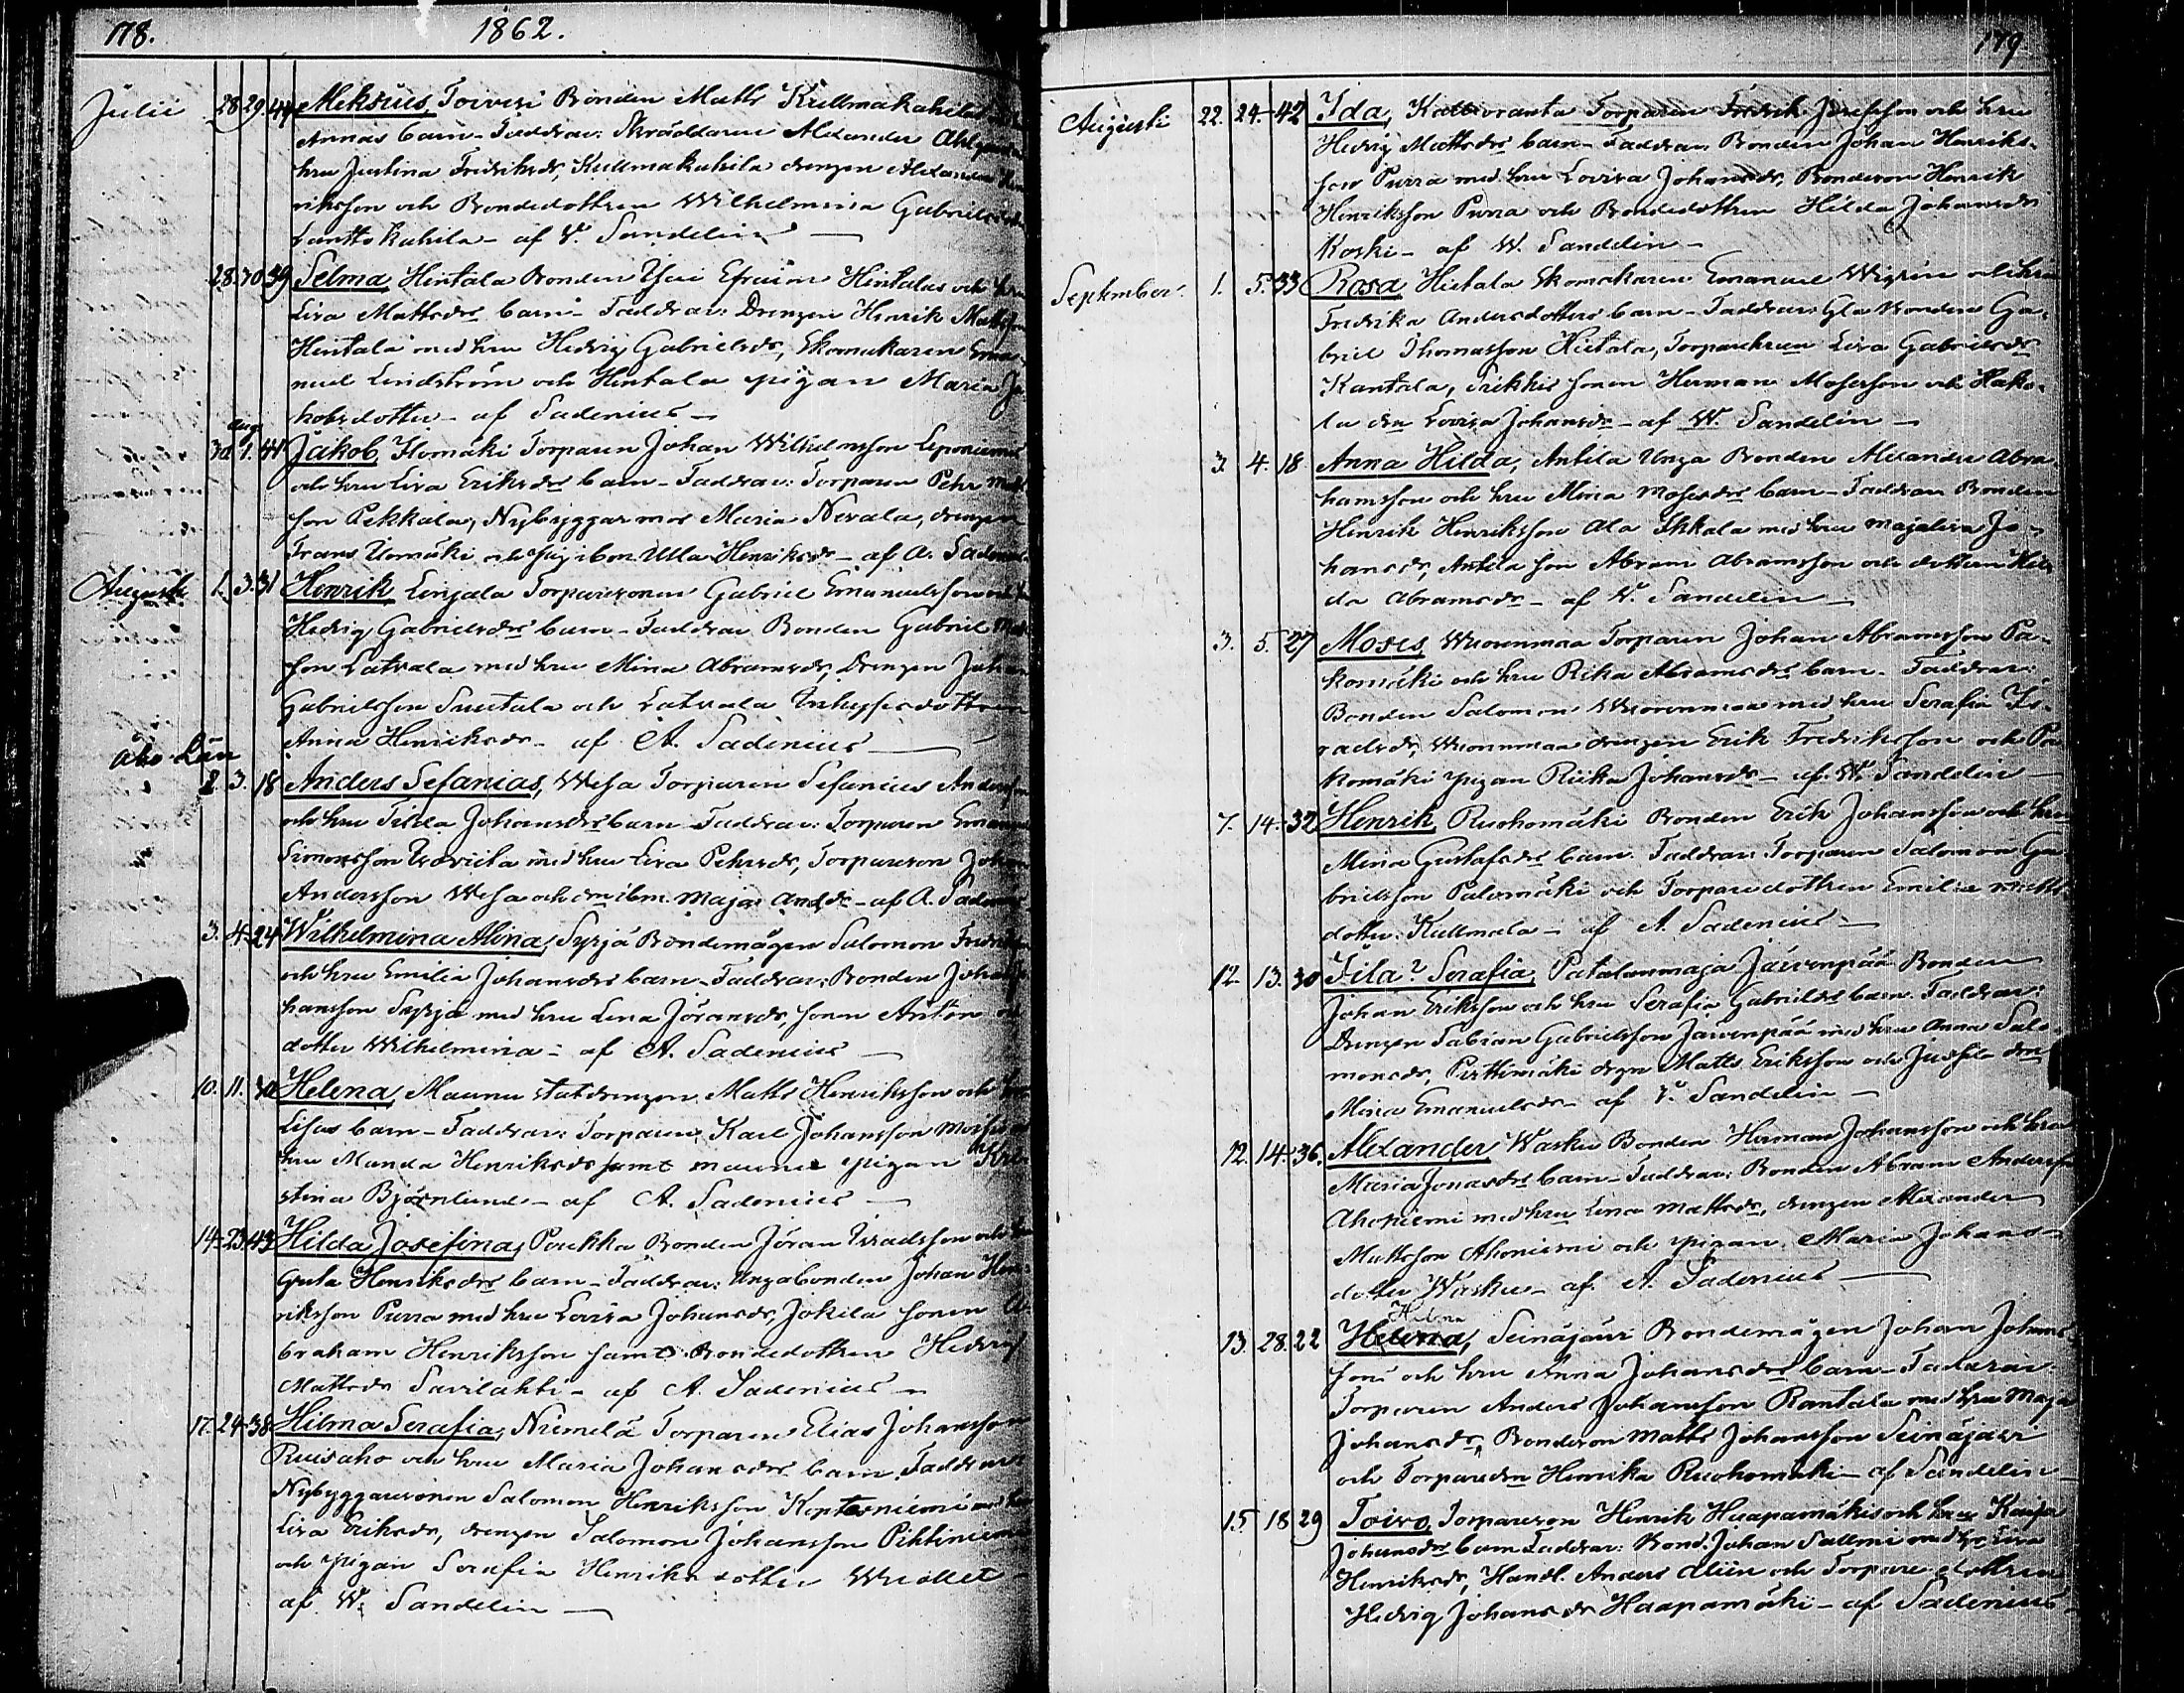 178. 1862.
Julii 28. 29. 44 Meksius, Toivesi Bonden Matts Kullmakahilas
Annas barn - Faddrar: Skräddaren Alexander Ahlgren
hru Justina Fredriksdr, Kullmakahila drengen Alexander Hen
riksson och Bondedottren Wilhelmina Gabrielsdr
Lanttokahila - af V. Sandelin
28. 30. 39 Selma, Hintala Bonden Efraim Hintalas och hru
Lisa Mattsdrs barn - Faddrar: Drengen Henrik Mattsson
Hintala med hru Hedvig Gabrielsdr, Skomakaren Ema
nuel Lindström och Hintala pigan Maria Ja
kobsdotter - af Sadenius
aug.
30. 1. 44 Jakob, Ilomäki Torparen Johan Wilhelmsson Leponiemis
och hru Lisa Eriksdrs barn - Faddrar: Torparen Pehr Matts
son Pekkala, Nybyggar mor Maria Nevala, drengen
Frans Ilomäki och pig. ibm Ulla Henriksdr - af A. Sadenius
Augusti 1. 3. 31 Henrik, Linjala Torparesonen Gabriel Emanuelsson och hru
Hedvig Gabrielsdrs barn - Faddrar Bonden Gabriel Matts
son Latvala med hru Mina Abramsdr, Drengen Johan
Gabrielsson Suutala och Latvala Inhyses dottren
Anna Henriksdr - af A. Sadenius
Åbo Län
2. 3. 18 Anders Sefanias, Wesa Torparen Sefanias Andersson
och hru Tilda Johansdrs barn - Faddrar: Torparen Emanuel
Simonsson med hru Lisa Pehrsdr, Torpareson Johan
Andersson Wesa och drn ibm. Maja Andsdr - af A. Sadenius
3. 4. 24 Wilhelmina Alina, Syrjä Bondemågen Salomon Fredriksson
och hru Emilia Johansdrs barn - Faddrar: Bonden Johan Jo
hansson Syrjä med hru Lena Jöransdr, sonen Anton och
dotter Wilhelmina - af A. Sadenius
10. 11. 40 Helena, Maunu statdrengen Matts Henriksson och hru
Lisas barn - Faddrar: Torparen Karl Johansson med
hru Manda Henriksdr samt Maunu pigan Kri
stina Björnlund - af A. Sadenius
14. 23. 43 Hilda Josefina, Poukka Bonden Jöran Israelsson och hru
Greta Henriksdrs barn - Faddrar: Ungabonden Johan Hen
riksson Purra med hru Lovisa Johansdr, Jokila sonen A
braham Henriksson samt Bondedottren Hedvig
Mattsdr Savilahti - af A. Sadenius
17. 24. 38 Hilma Serafia, Niemelä Torparen Elias Johansson
Ruisaho och hru Maria Johansdrs barn Faddrar
Nybyggaresonen Salomon Henriksson Koptoniemi med hru
Lisa Eriksdr, drengen Salomon Johansson Pihtiniemi
och pigan Serafia Henriksdotter Wiollet
af W. Sandelin
179
Augusti 22. 24. 42 Ida, Kallioranta Torparen Fredrik Josefsson och hru
Hedvig Mattsdrs barn - Faddrar: Bonden Johan Henriks
son Purra med hru Lovisa Johansdr, Bondeson Henrik
Henriksson Purra och Bondedottren Hilda Johansdr
Koski - af W. Sandelin
September. 1. 5. 33 Rosa, Hietala Skomakaren Emanuel Wigren och hru
Fredrika Andersdotters barn - Faddrar: Gla Bonden Ga
briel Thomasson Hietala, Torparehrun Lisa Gabrielsdr
Kantola, Erikkis sonen Herman Mosesson och Hako
la drn Lovisa Johansdr - af W. Sandelin
3. 4. 18 Anna Hilda, Antila Unga Bonden Alexander Abra
hamsson och hru Mina Mosesdrs barn - Faddrar Bonden
Henrik Henriksson Ala Ikkala med hru Majalisa Jo
hansdr, Antila son Abram Abramsson och dottern Hil
da Abramsdr - af V. Sandelin
3. 5. 27 Moses, Wuorenmaa Torparen Johan Abramsson Pa
komäki och hru Rika Abramsdrs barn - Faddrar:
Bonden Salomon Wuorenmaa med hru Serafia Is
raelsdr, Wuorenmaa drengen Erik Fredriksson och Pa
komäki pigan Rika Johansdr - af W. Sandelin
7. 14. 32 Henrik, Ruohomäki Bonden Erik Johansson och hru
Mina Gustafsdrs barn. Faddrar: Torparen Salomon Ga
brielsson Palomäki och Torparedottren Emilia Matts
dotter Kullmala - af A. Sadenius
12. 13. 30 Fila? Serafia, Patalanmaja Järvenpää Bonden
Johan Eriksson och hru Serafia Gabrielsdrs barn. Faddrar:
Drengen Fabian Gabrielsson Järvenpää med hru Anna Salo
monsdr, Perttimäki drgn Matts Eriksson och Jussila drn
Mina Emanuelsdr - af V. Sandelin
12. 14. 36. Alexander, Wasku Bonden Herman Johansson och hru
Maria Jonasdrs barn - Faddrar: Bonden Abram Andersson
Ahoniemi med hru Lena Mattsdr, drengen Alexander
Mattsson Ahoniemi och pigan Maria Johans
dotter Wasku - af A. Sadenius
Helena
13. 28. 22 Helena, Seinäjärvi Bondemågen Johan Johans
son och hru Anna Johansdrs barn - Faddrar
Torparen Anders Johansson Rantala med hru Maja
Johansdr, Bondeson Matts Johansson Seinäjärvi
och Torparedrn Henrika Ruohomäki - af Sandelin
15. 18. 29 Toivo, Torpareson Henrik Haapamäkis och hrus Kaisa
Johansdrs barn Faddrar: Bond. Johan Sallmi med hru Lisa
Henriksdr, Handl. Anders Alün och Torpare dottren
Hedvig Johansdr Haapamäki - af Sadenius